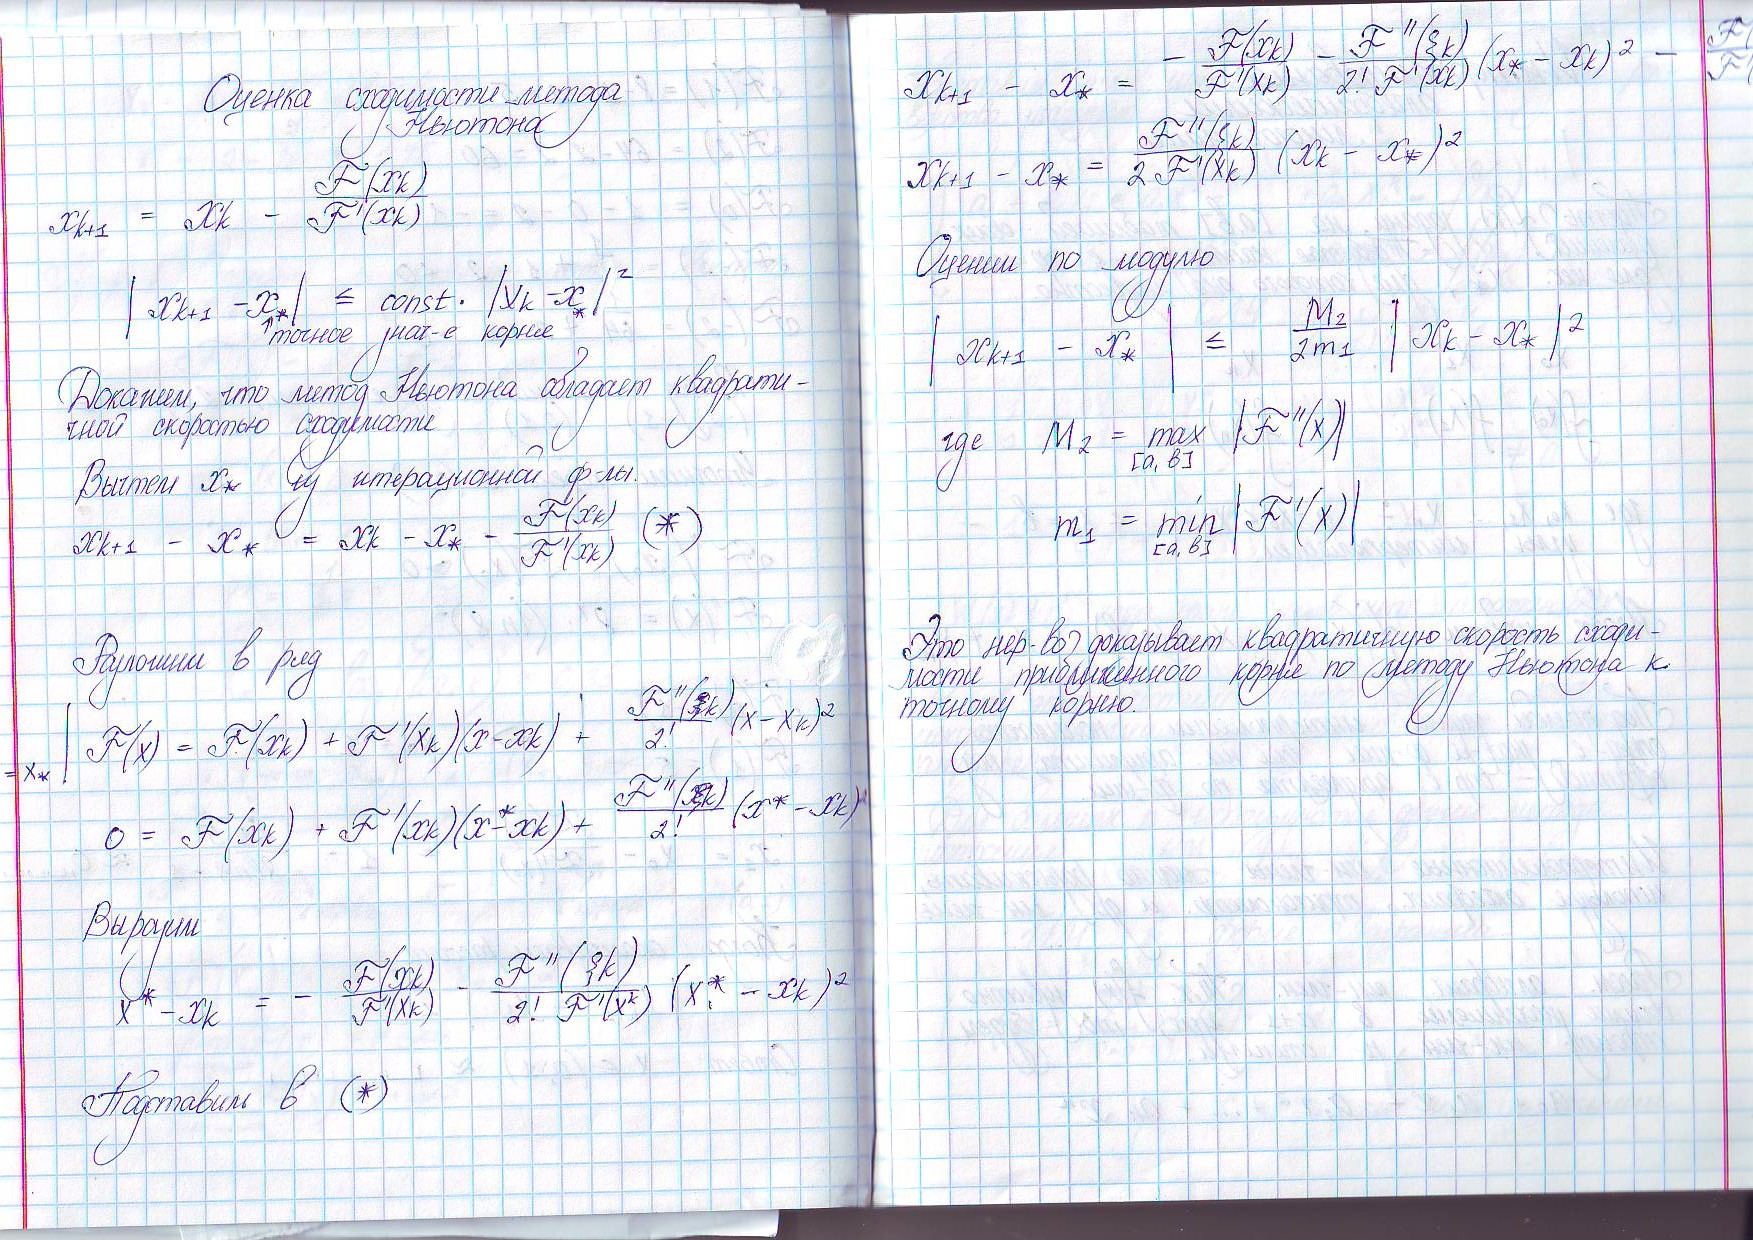 Оценка сходимости метода
Ньютона
x_{k+1} = x_k - F(x_k) / F'(x_k)
| x_{k+1} - x_* | ≤ const · | x_k - x_* |²
↑ точное знач-е корня
Докажем, что метод Ньютона обладает квадрати-
чной скоростью сходимости
Вычтем x_* из итерационной ф-лы.
x_{k+1} - x_* = x_k - x_* - F(x_k) / F'(x_k) (*)
Разложим в ряд
= x_* | F(x) = F(x_k) + F'(x_k)(x - x_k) + F''(ξ_k) / 2! (x - x_k)²
0 = F(x_k) + F'(x_k)(x^* - x_k) + F''(ξ_k) / 2! (x^* - x_k)²
Выразим
x^* - x_k = - F(x_k) / F'(x_k) - F''(ξ_k) / 2! F'(x^k) (x^* - x_k)²
Подставим в (*)
x_{k+1} - x_* = - F(x_k) / F'(x_k) - F''(ξ_k) / 2! F'(x_k) (x_* - x_k)² -
x_{k+1} - x_* = F''(ξ_k) / 2 F'(x_k) (x_k - x_*)²
Оценим по модулю
| x_{k+1} - x_* | ≤ M_2 / 2m_1 | x_k - x_* |²
где M_2 = max [a, b] |F''(x)|
m_1 = min [a, b] |F'(x)|
Это нер-во доказывает квадратичную скорость сходи-
мости приближенного корня по методу Ньютона к
точному корню.